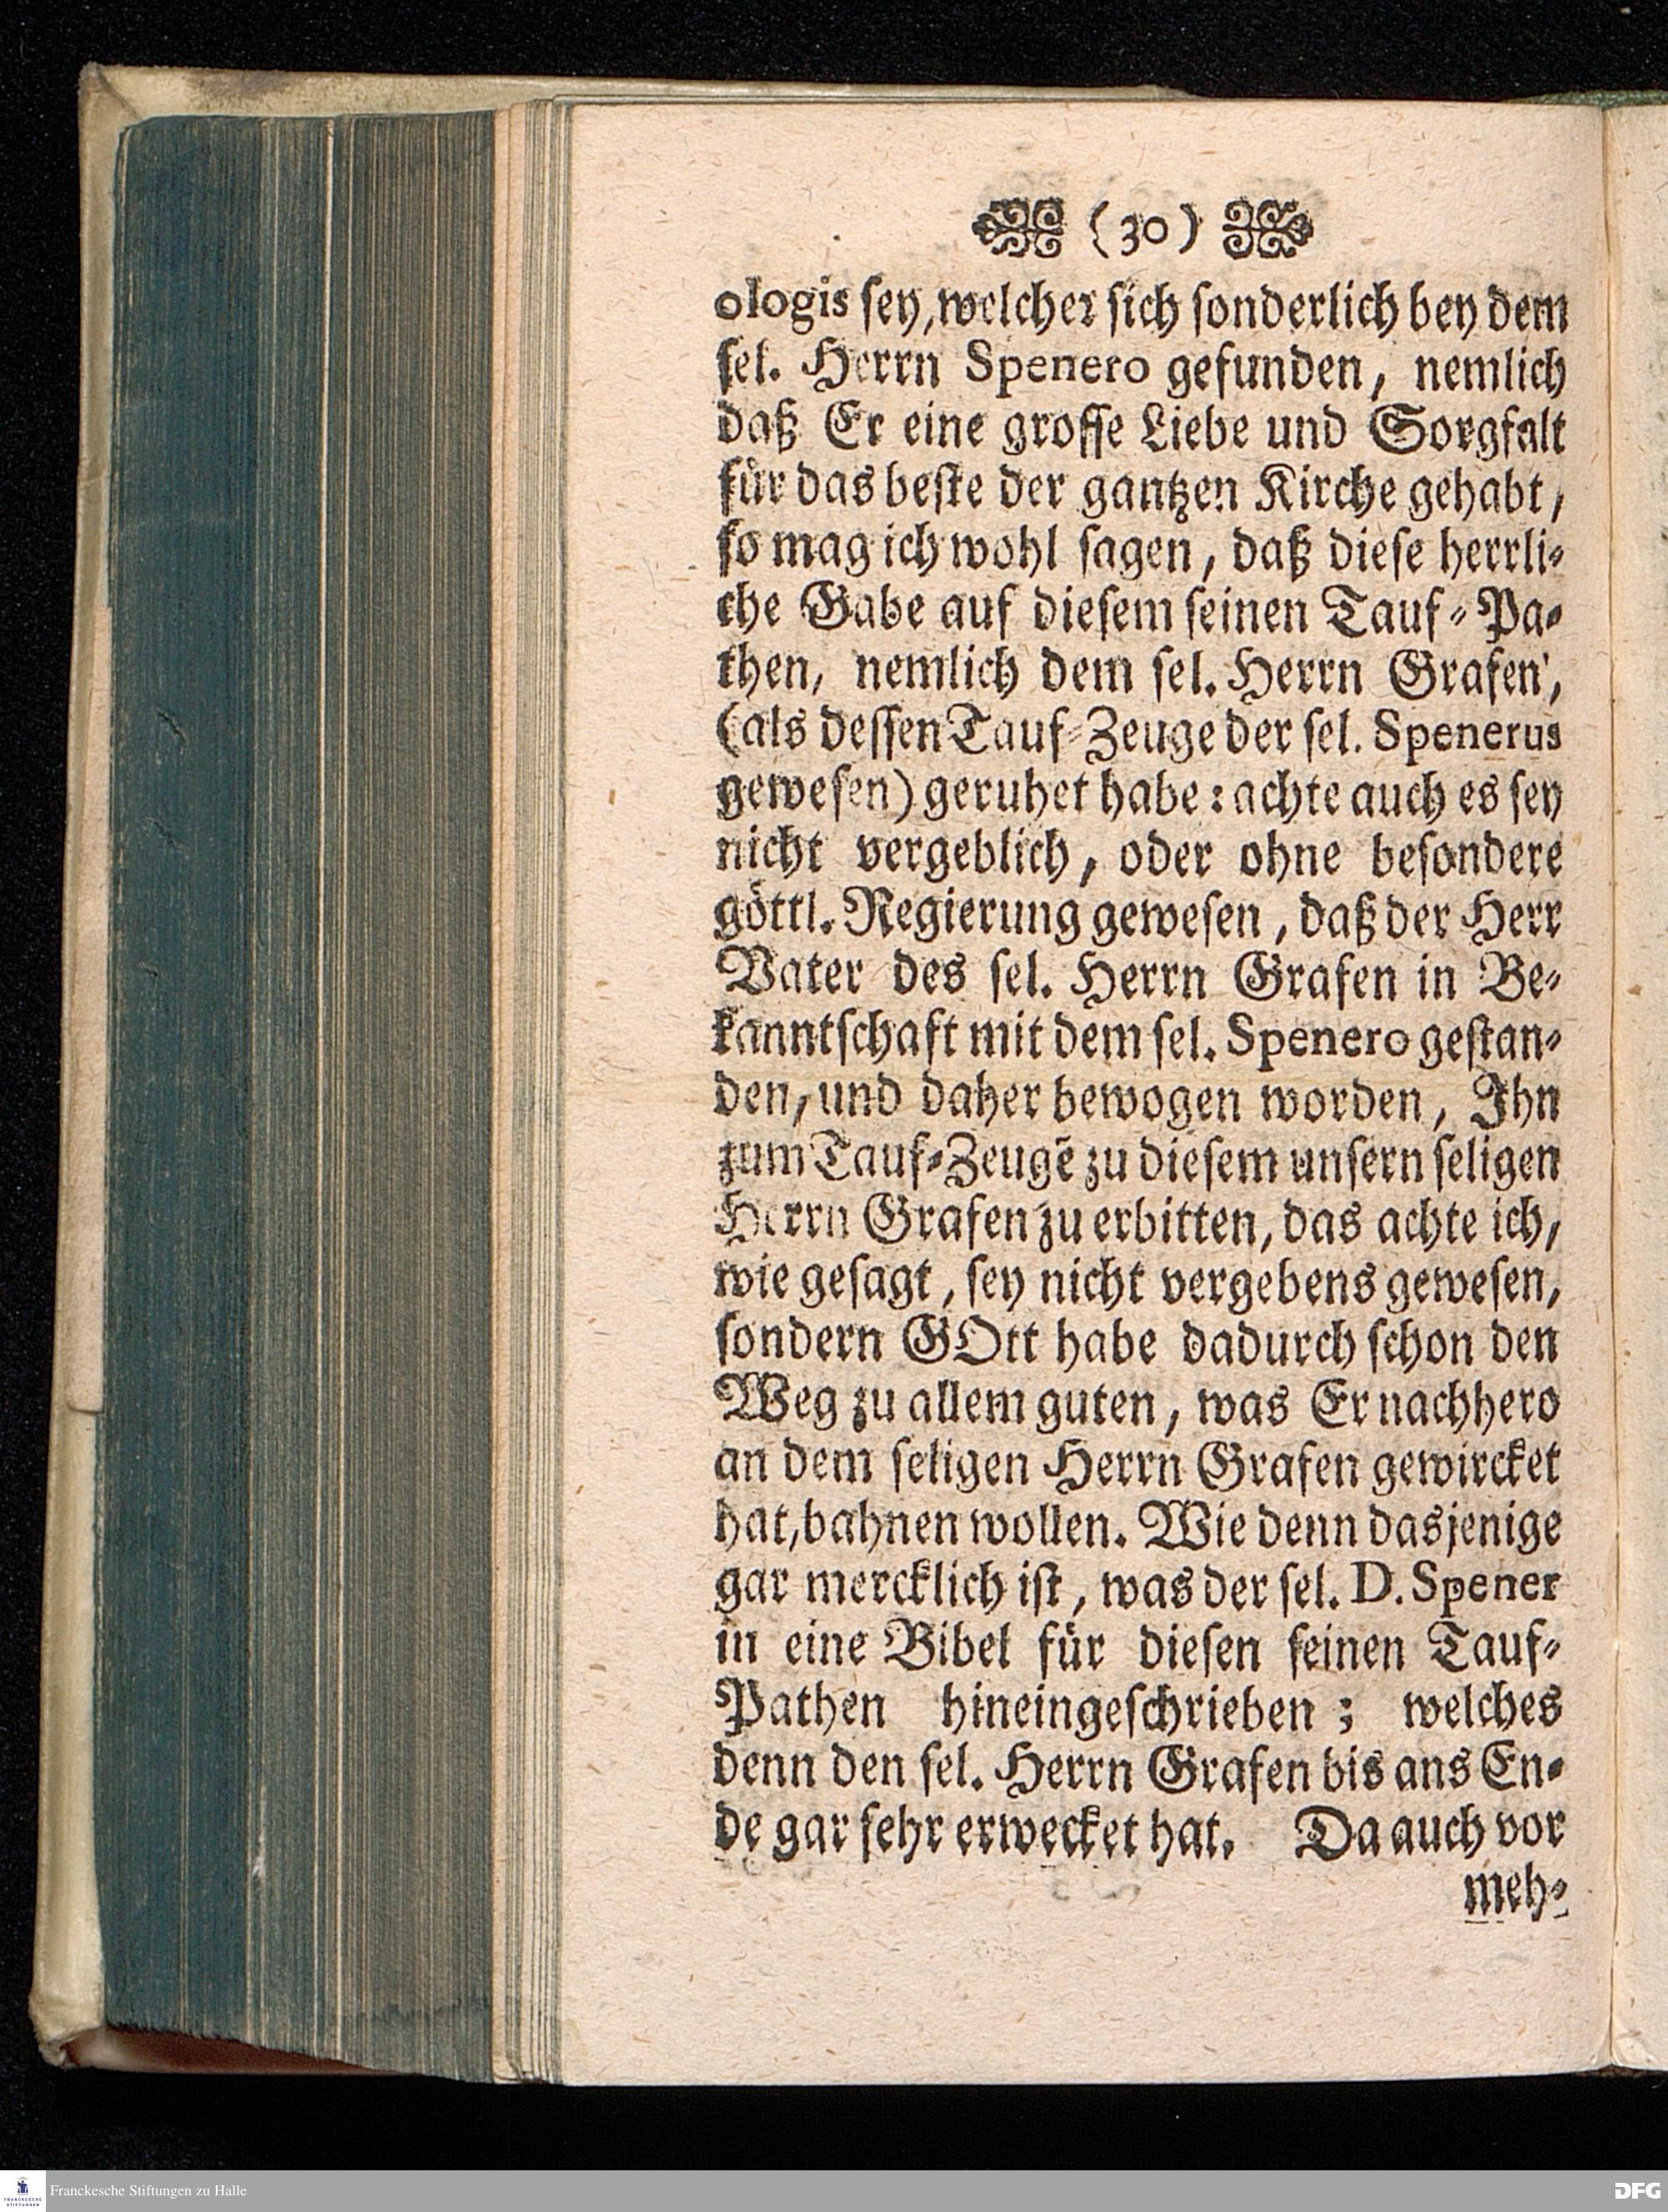 (30)
ologis ſey, welcher ſich ſonderlich bey dem
ſel. Herrn Spenero gefunden, nemlich
daß Er eine groſſe Liebe und Sorgfalt
für das beſte der gantzen Kirche gehabt,
ſo mag ich wohl ſagen, daß dieſe herrli-
che Gabe auf dieſem ſeinen Tauf-Pa-
then, nemlich dem ſel. Herrn Grafen,
(als deſſen Tauf-Zeuge der ſel. Spenerus
geweſen) geruhet habe: achte auch es ſey
nicht vergeblich, oder ohne beſondere
göttl. Regierung geweſen, daß der Herr
Vater des ſel. Herrn Grafen in Be-
kanntſchaft mit dem ſel. Spenero geſtan-
den, und daher bewogen worden, Ihn
zum Tauf-Zeugē zu dieſem unſern ſeligen
Herrn Grafen zu erbitten, das achte ich,
wie geſagt, ſey nicht vergebens geweſen,
ſondern GOtt habe dadurch ſchon den
Weg zu allem guten, was Er nachhero
an dem ſeligen Herrn Grafen gewircket
hat, bahnen wollen. Wie denn dasjenige
gar mercklich iſt, was der ſel. D. Spener
in eine Bibel für dieſen ſeinen Tauf-
Pathen hineingeſchrieben; welches
denn den ſel. Herrn Grafen bis ans En-
de gar ſehr erwecket hat. Da auch vor
meh-
FRANCKESCHE STIFTUNGEN
Franckesche Stiftungen zu Halle
DFG